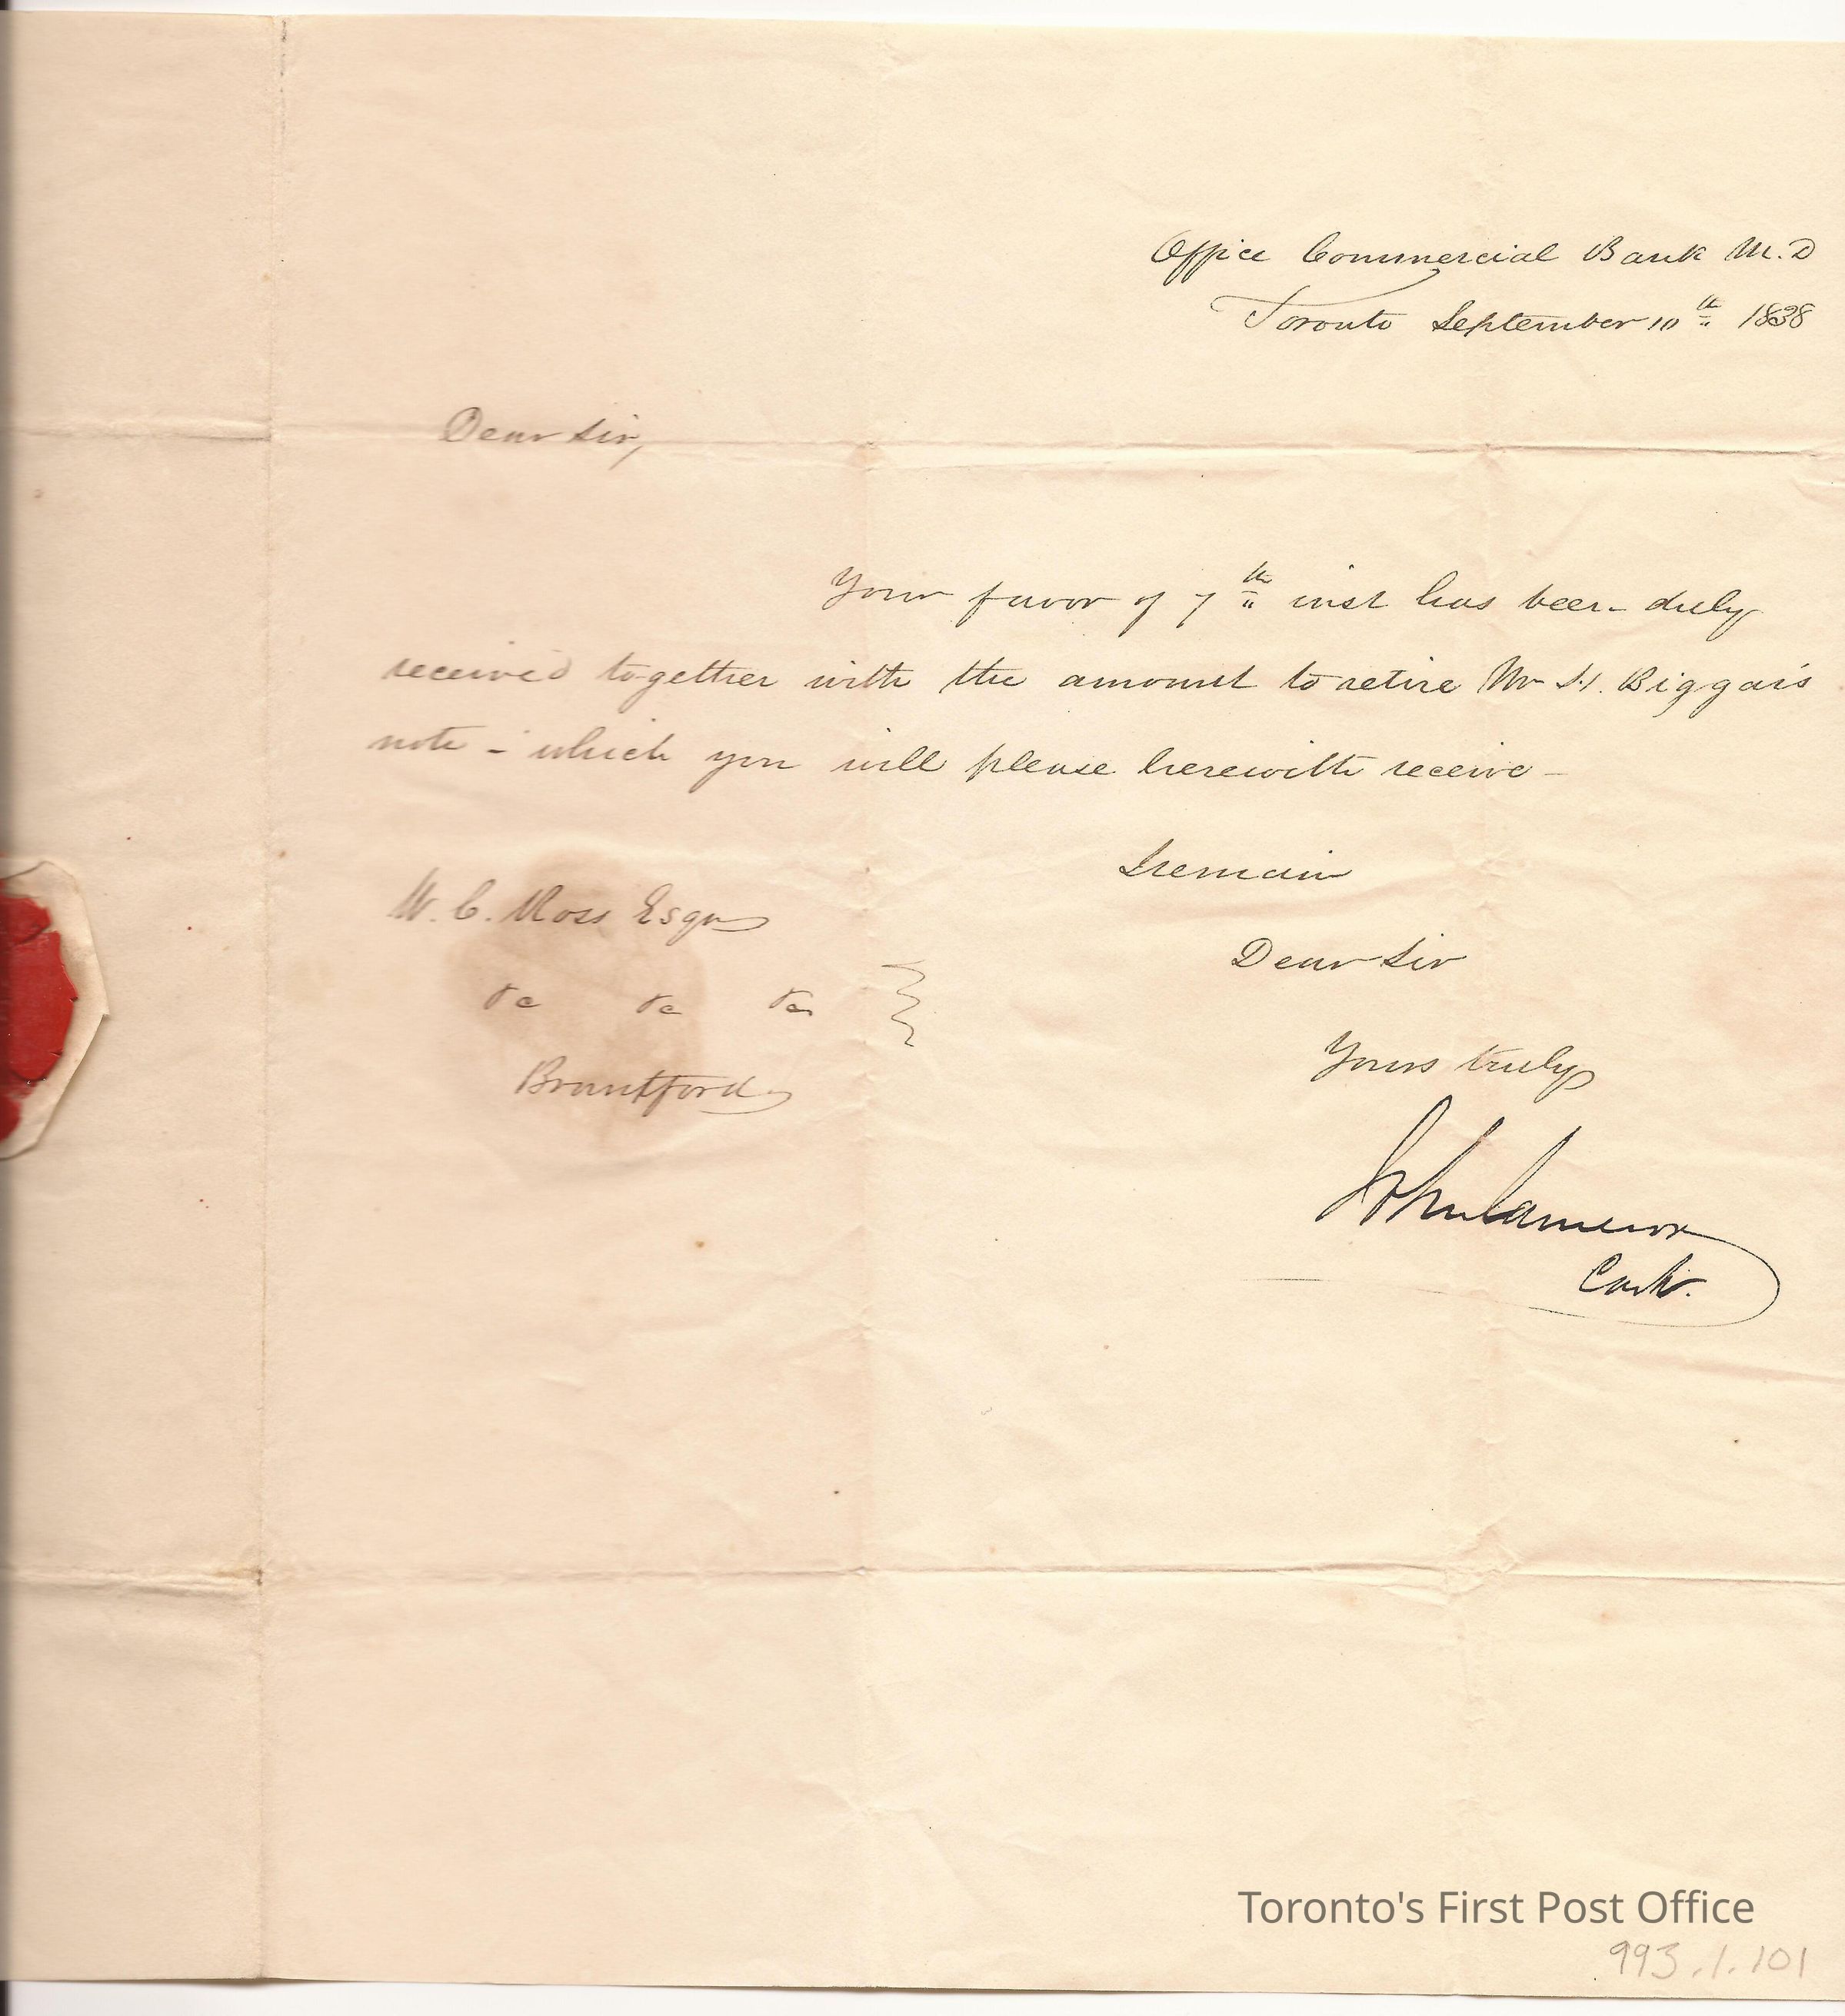 Office Commercial Bank M.D
Toronto September 10th 1838
Dear Sir,
Your favor of 7th inst has been duly
received together with the amount to retire Mr H. Biggar's
note - which you will please herewith receive -
I remain
W. C. Ross Esqr
Dear Sir
&c &c &c
Yours truly
Brantford
John Cameron
Cashr.
Toronto's First Post Office
993.1.101